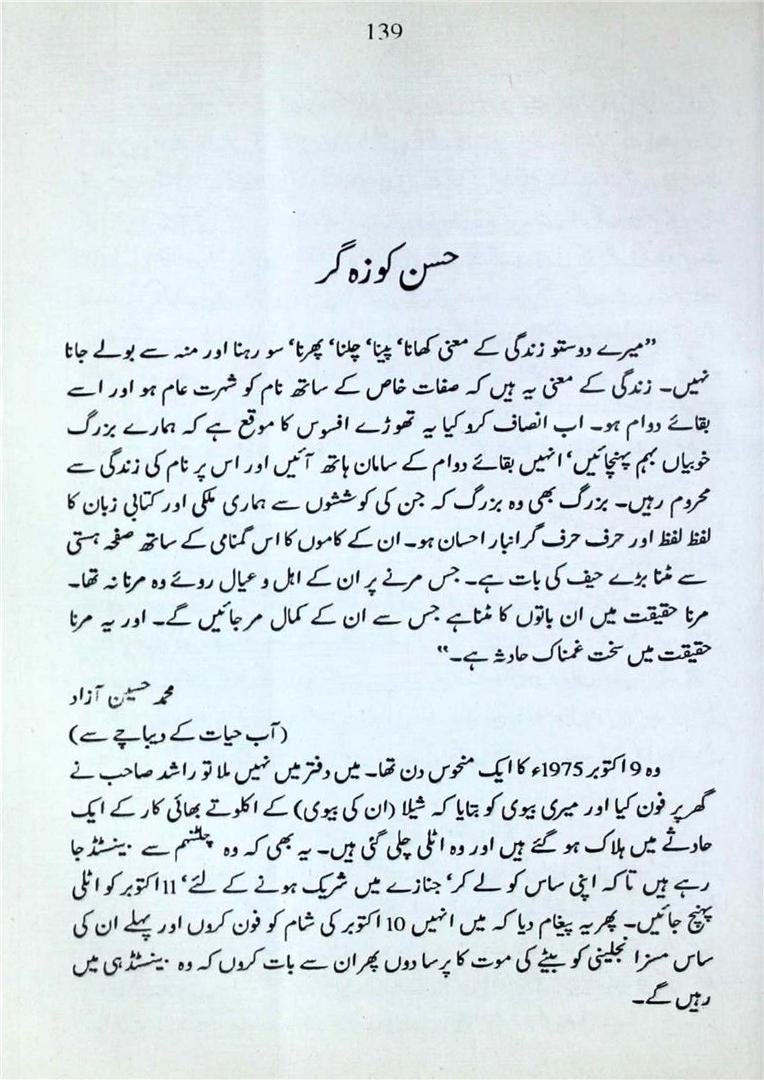 139
حسن کوزہ گر
”میرے دوستو زندگی کے معنی کھانا‘ پینا‘ چلنا‘ پھرنا‘ سو رہنا اور منہ سے بولے جانا
نہیں۔ زندگی کے معنی یہ ہیں کہ صفات خاص کے ساتھ نام کو شہرت عام ہو اور اسے
بقائے دوام ہو۔ اب انصاف کرو کیا یہ تھوڑے افسوس کا موقع ہے کہ ہمارے بزرگ
خوبیاں بہم پہنچائیں‘ انہیں بقائے دوام کے سامان ہاتھ آئیں اور اس پر نام کی زندگی سے
محروم رہیں۔ بزرگ بھی وہ بزرگ کہ جن کی کوششوں سے ہماری ملکی اور کتابی زبان کا
لفظ لفظ اور حرف حرف گرانبار احسان ہو۔ ان کے کاموں کا اس گمنامی کے ساتھ صفحہ ہستی
سے مٹنا بڑے حیف کی بات ہے۔ جس مرنے پر ان کے اہل و عیال روئے وہ مرنا نہ تھا۔
مرنا حقیقت میں ان باتوں کا مٹنا ہے جس سے ان کے کمال مر جائیں گے۔ اور یہ مرنا
حقیقت میں سخت غمناک حادثہ ہے۔“
محمد حسین آزاد
(آب حیات کے دیباچے سے)
وہ 9 اکتوبر 1975ء کا ایک منحوس دن تھا۔ میں دفتر میں نہیں ملا تو راشد صاحب نے
گھر پر فون کیا اور میری بیوی کو بتایا کہ شیلا (ان کی بیوی) کے اکلوتے بھائی کار کے ایک
حادثے میں ہلاک ہو گئے ہیں اور وہ اٹلی چلی گئی ہیں۔ یہ بھی کہ وہ چلٹنم سے بینسٹڈ جا
رہے ہیں تاکہ اپنی ساس کو لے کر‘ جنازے میں شریک ہونے کے لئے‘ 11 اکتوبر کو اٹلی
پہنچ جائیں۔ پھر یہ پیغام دیا کہ میں انہیں 10 اکتوبر کی شام کو فون کروں اور پہلے ان کی
ساس مسز انجلینی کو بیٹے کی موت کا پرسا دوں پھر ان سے بات کروں کہ وہ بینسٹڈ ہی میں
رہیں گے۔